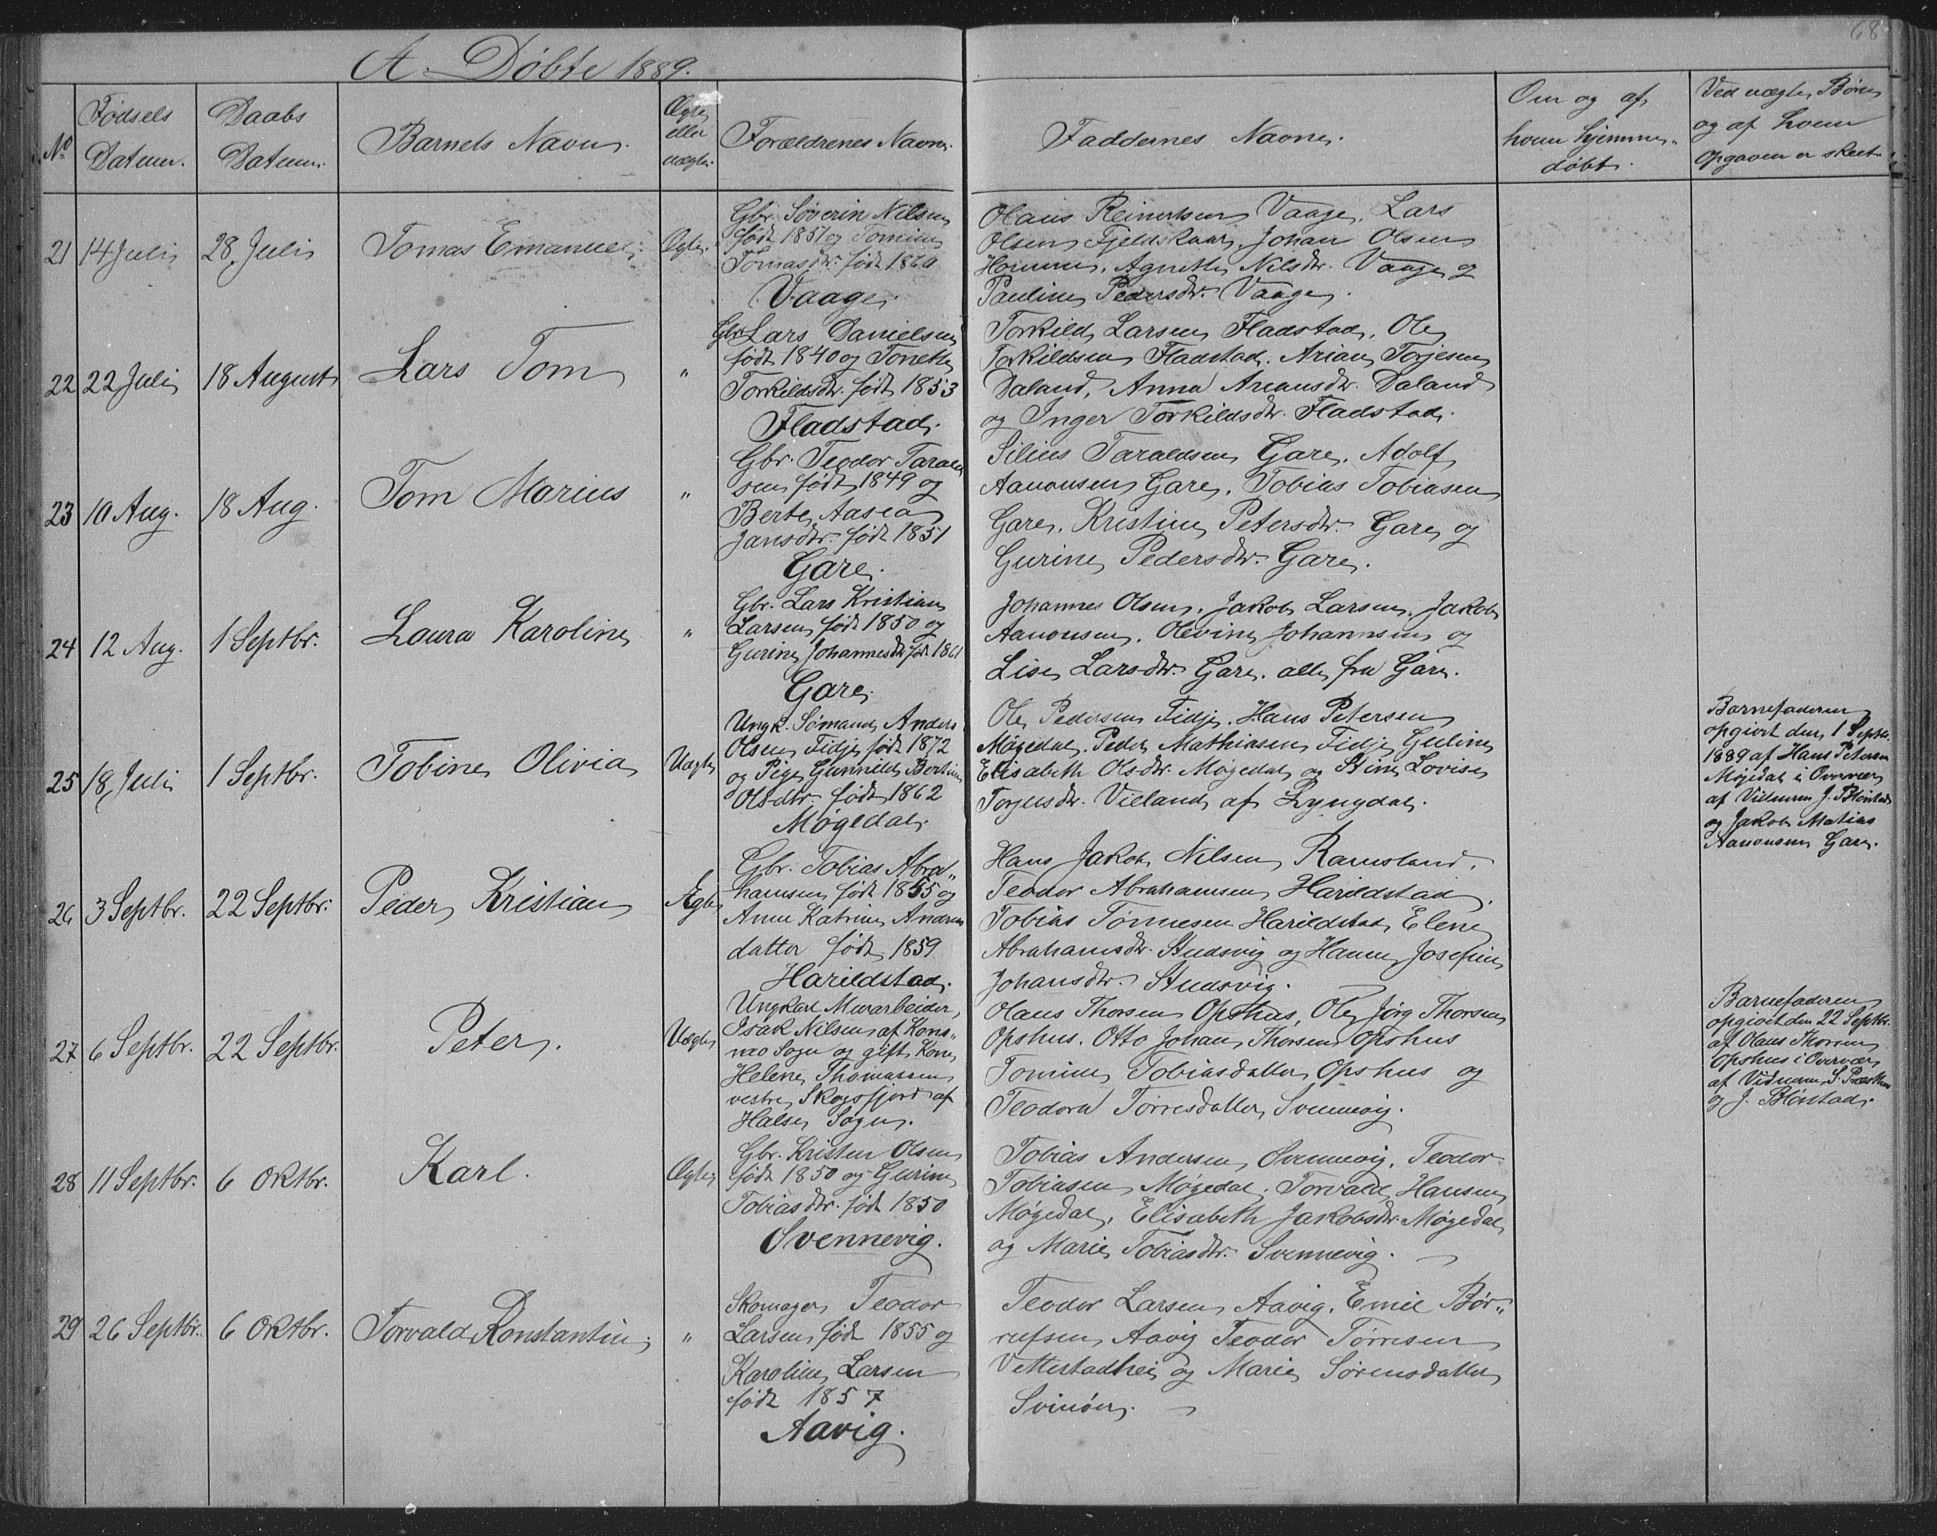 68
A. Døbte 1889.
No
Fødsels Datum.
Daabs Datum.
Barnets Navn.
Ægte eller uægte.
Forældrenes Navne.
Faddernes Navne.
Om og af hvem hjemmedøbt.
Ved uægte Børn og af hvem Opgaven er skeet
21 14 Juli 28 Juli Tomas Emanuel. Ægte.
Gbr. Søverin Nilsen
født 1851 og Tomine
Tomasdtr. født 1860
Vaage.
Olaus Reinertsen Vaage, Lars
Olsen Fjeldskaar, Johan Olsen
Homme, Agnethe Nilsdtr. Vaage og
Pauline Pedersdtr. Vaage.
22 22 Juli 18 August Lars Tom "
Gbr Lars Danielsen
født 1840 og Tonethe
Torkildsdtr. født 1853
Fladstad.
Torkild Larsen Fladstad, Ole
Torkildsen Fladstad, Arian Torjesen
Daland, Anna Ariansdtr. Daland
og Inger Torkildsdtr. Fladstad.
23 10 Aug. 18 Aug. Tom Marius "
Gbr. Teodor Tarald
sen født 1849 og
Berte Aasea
Jansdtr. født 1851
Gare.
Silius Taraldsen Gare, Adolf
Aanonsen Gare, Tobias Tobiasen
Gare, Kristine Petersdtr. Gare og
Gurine Pedersdtr. Gare.
24 12 Aug. 1 Septbr. Laura Karoline "
Gbr. Lars Kristian
Larsen født 1850 og
Gurine Johannesdtr født 1861
Gare.
Johannes Olsen, Jakob Larsen, Jakob
Aanonsen, Olevine Johannsen og
Lise Larsdtr. Gare, alle fra Gare.
25 18 Juli 1 Septbr. Tobine Olivia Uægte
Ungk. Sømand Anders
Olsen Fidje født 1872
og Pige Gunnild Bertine
Olsdtr. født 1862
Møgedal.
Ole Pedersen Fidje, Hans Petersen
Møgedal, Peder Mathiasen Fidje, Guline
Elisabeth Olsdtr. Møgedal og Stine Lovise
Torjusdtr. Vieland af Lyngdal.
Barnefaderen
opgivet den 1 Septbr.
1889 af Hans Petersen
Møgedal i Overvær
af Vidnerne J. Blørstad
og Jakob Matias
Aanonsen Gare.
26 3 Septbr. 22 Septbr. Peder Kristian Ægte
Gbr. Tobias Abra"
hamsen født 1855 og
Anne Katrine Andreas
datter født 1859
Harildstad.
Hans Jakob Nilsen Ramsland,
Teodor Abrahamsen Harildstad,
Tobias Tønnesen Harildstad, Elene
Abrahamsdtr. Studsvig og Hanne Josefine
Johansdtr. Studsvig.
27 6 Septbr. 22 Septbr. Peter. Uægte
Ungkarl Murarbeider
Isak Nilsen af Kons=
mo Sogn og gift Kone
Helene Thomassen
vestre Skogsfjord af
Halse Sogn.
Olaus Thorsen Opshus, Ole Jørg Thorsen
Opshus, Otto Johan Thorsen Opshus
Tomine Tobiasdatter Opshus og
Teodora Tørresdatter Svennevig.
Barnefaderen
opgivet den 22 Septbr.
af Olaus Thorsen
Opshus i Overvær
af Vidnerne S.
og J. Blørstad.
28 11 Septbr. 6 Oktbr. Karl. Ægte
Gbr. Kristen Olsen
født 1850 og Gurine
Tobiasdtr. født 1850
Svennevig.
Tobias Andersen Svennevig, Teodor
Tobiasen Møgedal, Torvald Hansen
Møgedal, Elisabeth Jakobsdtr. Møgedal
og Marie Tobiasdtr. Svennevig.
29 26 Septbr. 6 Oktbr. Torvald Konstantin. "
Skomager Teodor
Larsen født 1855 og
Karoline Larsen
født 1857
Aavig.
Teodor Larsen Aavig, Emil Bør"
rufsen Aavig Teodor Tørresen
Vetterstadhei og Marie Sørensdatter
Svinøer.